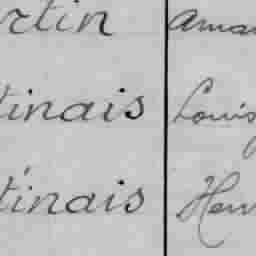 rtin Aman
tinais Louis
tinais Hen